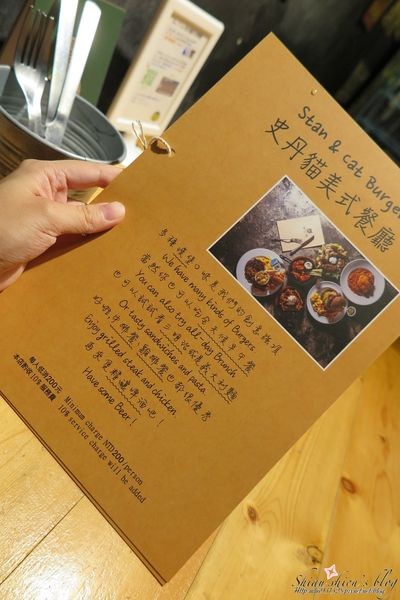 Stan & Cat Burger
史丹貓美式餐廳
多種漢堡口味是我們的創業路線
We have many kinds of Burgers
當然你也可以吃全天候早午餐
You can also try all-day Brunch
也可以試試看三明治或是義大利麵
Or tasty sandwiches and pasta
好咬牛排餐、雞排餐也都很優秀
Enjoy grilled steak and chicken.
再來罐精釀啤酒吧！
Have some Beer!
每人低消200元
本店酌收10%服務費
Minimum charge NTD200/person
10%service charge will be added
Shinn shion's blog